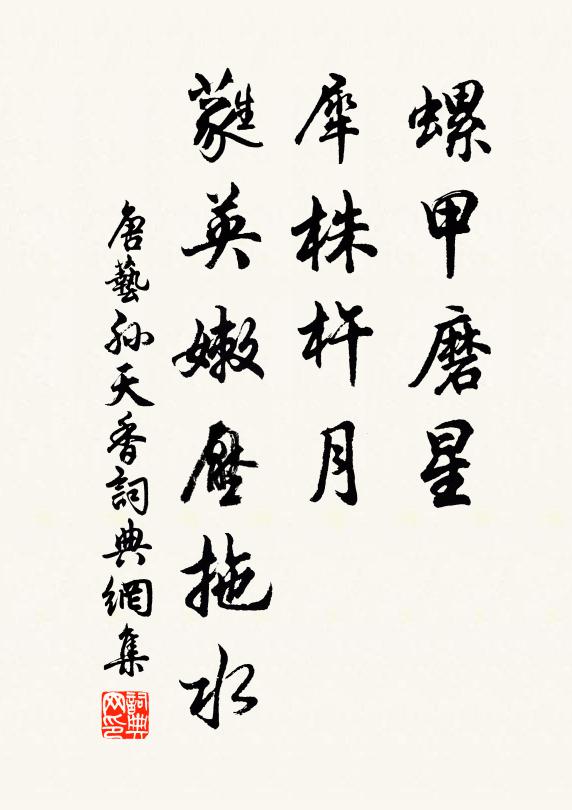 螺甲磨星
犀株杵月
蕤英嫩壓拖水
唐藝孫天香詞典網集
詞典网印